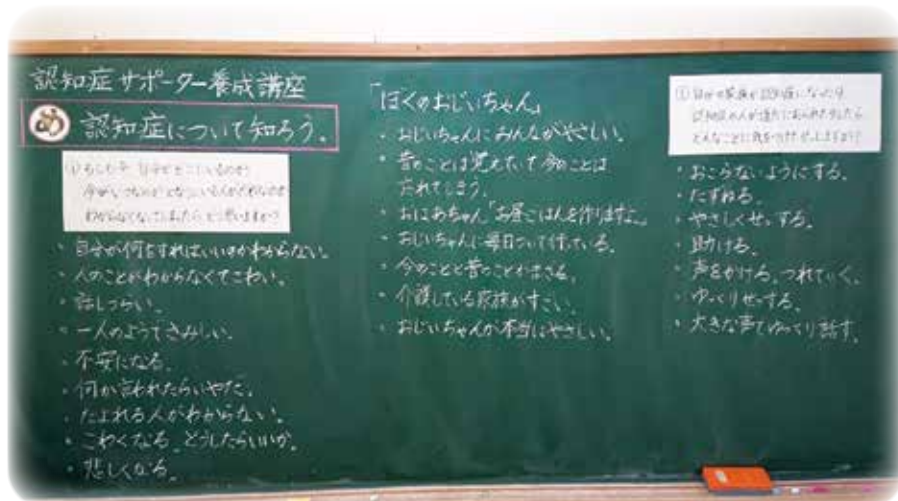 認知症サポーター養成講座
め 認知症について知ろう。
①もしも今、自分がどこにいるのか
今がいつなのか、となりにいる人がだれなのか
わからなくなってしまったらどう思いますか?
・自分が何をすればいいのかわからない。
・人のことがわからなくてこわい。
・話しづらい。
・一人のようでさみしい。
・不安になる。
・何か言われたらいやだ。
・たよれる人がわからない。
・こわくなる。どうしたらいいか。
・悲しくなる。
「ぼくのおじいちゃん」
・おじいちゃんにみんながやさしい。
・昔のことは覚えていて今のことは
忘れてしまう。
・おばあちゃん「お昼ごはんを作りますよ。」
・おじいちゃんに毎日ついて
・今のことと昔のことがまざる。
・介護している家族がすごい。
・おじいちゃんが本当にやさしい。
自分の家族が認知症になったり
認知症の人が
どんなことに気をつけて
・おこらないようにする。
・たずねる。
・やさしくせっする。
・助ける。
・声をかける。つれていく。
・ゆっくりせっする。
・大きな声でゆっくり話す。